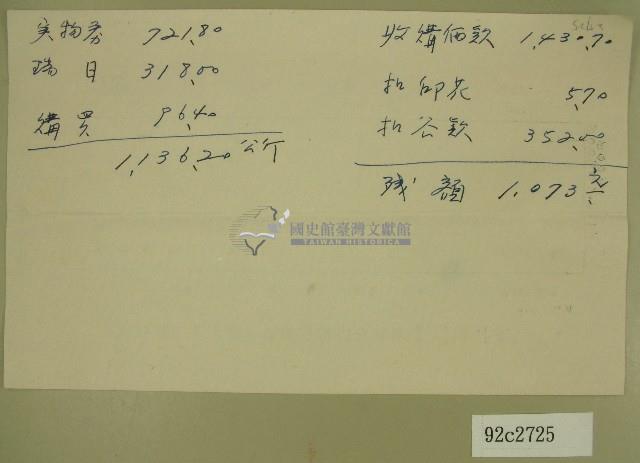 実物券 721.80
瑞日 318.00
購買 96.40
1,136.20 公斤
收購価款 1,430.70
扣印花 5.70
扣公款 352.00
残額 1,073元
國史館臺灣文獻館
TAIWAN HISTORICA
92c2725